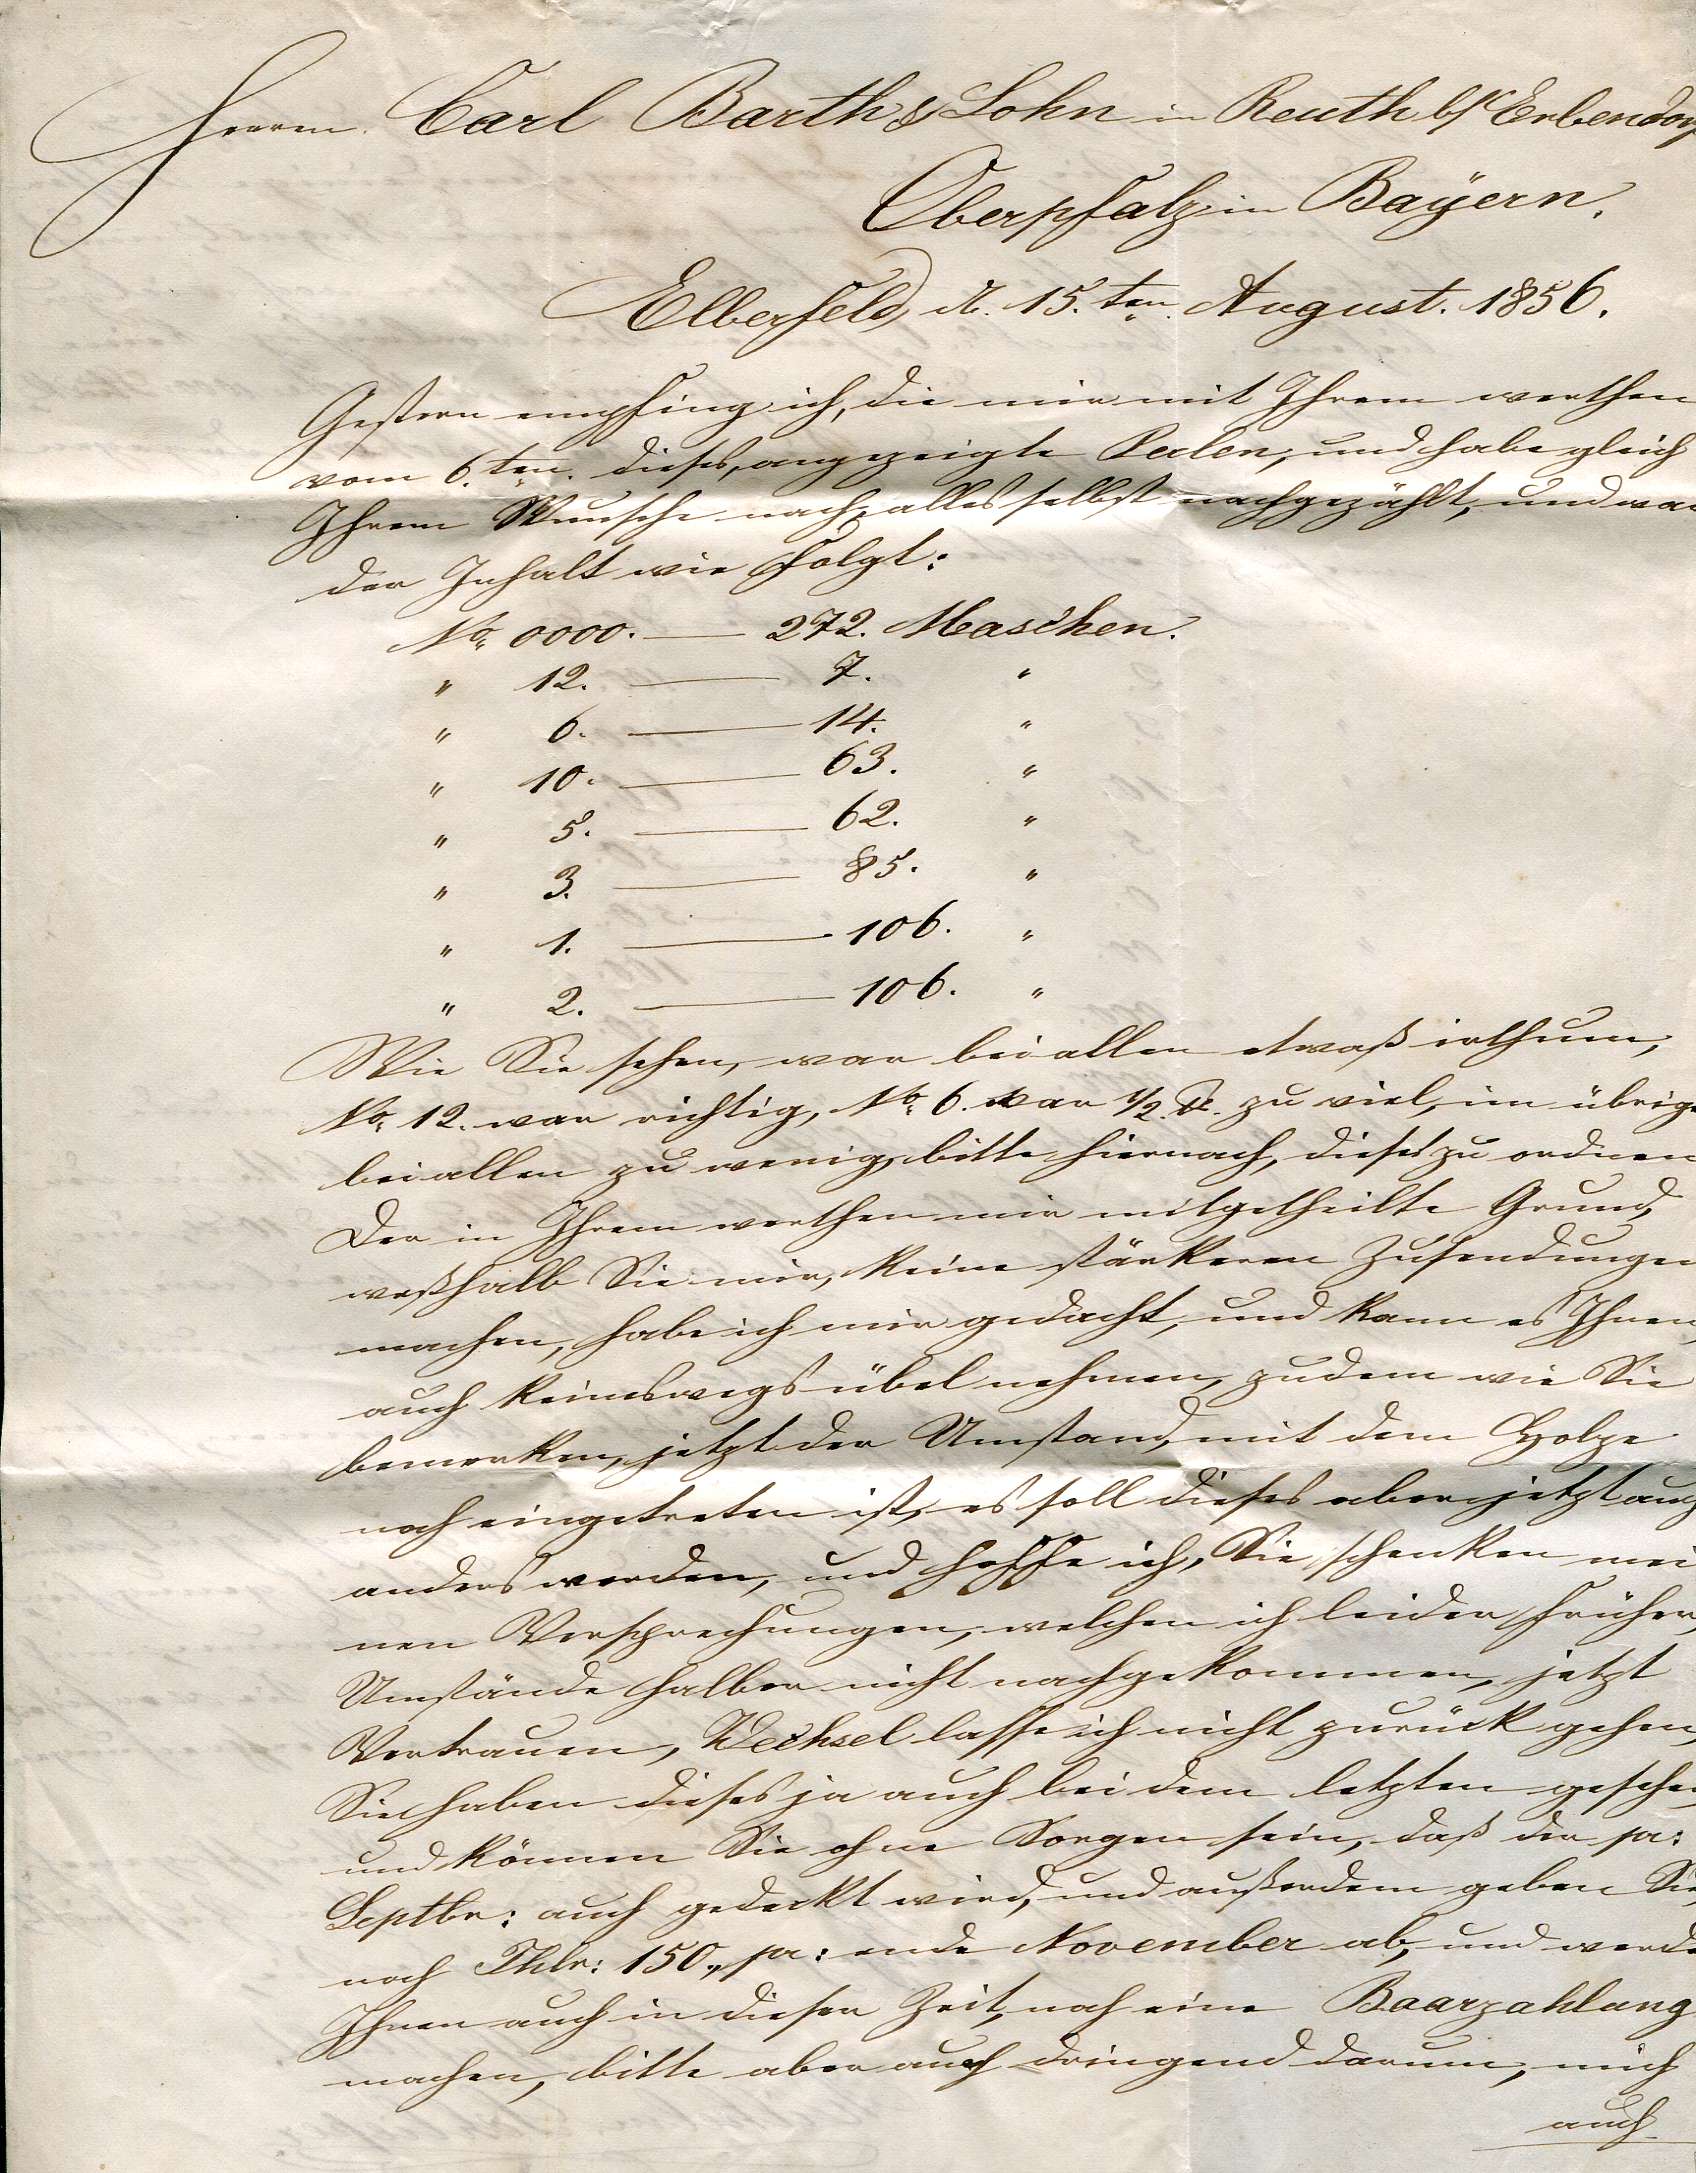 Herrn Carl Barth & Sohn in Reuth b/ Erbendorf
Oberpfalz in Bayern.
Elberfeld, d. 15.ten August. 1856.
Gestern empfing ich, die mir mit Ihrem werthen
vom 6.ten dieses, angezeigte Perlen, und habe gleich
Ihrem Wunsche nach, alles selbst nachgezählt, und war
der Inhalt wie folgt:
No. 0000. — 272. Maschen.
" 12. — 7. "
" 6. — 14. "
" 10. — 63. "
" 5. — 62. "
" 3. — 85. "
" 1. — 106. "
" 2. — 106. "
Wie Sie sehen, war bei allen etwaß irthum,
No. 12. war richtig, No. 6. war 1/2 zu viel, im übrigen
bei allen zu wenig, bitte hiernach, dieses zu ordnen
Der in Ihrem werthen mir mitgetheilte Grund,
weßhalb Sie mir, keine stärkeren Zusendungen
machen, habe ich mir gedacht, und kann es Ihnen,
auch keineswegs übel nehmen, zudem wie Sie
bemerken, jetzt der Umstand, mit dem Holze
noch eingetreten ist, es soll dieses aber jetzt auch
anders werden, und hoffe ich, Sie schenken mei
nen Versprechungen, welchen ich leider früher,
Umstände halber nicht nachgekommen, jetzt
Vertrauen, Wechsel lasse ich nicht zurück gehen,
Sie haben dieses ja auch bei dem letzten gesehen,
und können Sie ohne Sorgen sein, daß der pr:
Septbr: auch gedeckt wird, und außerdem geben Sie,
noch Thlr: 150., pr: ende November ab, und werde
Ihnen auch in dieser Zeit, noch eine Baarzahlung
machen, bitte aber auch dringend darum, mich
auch